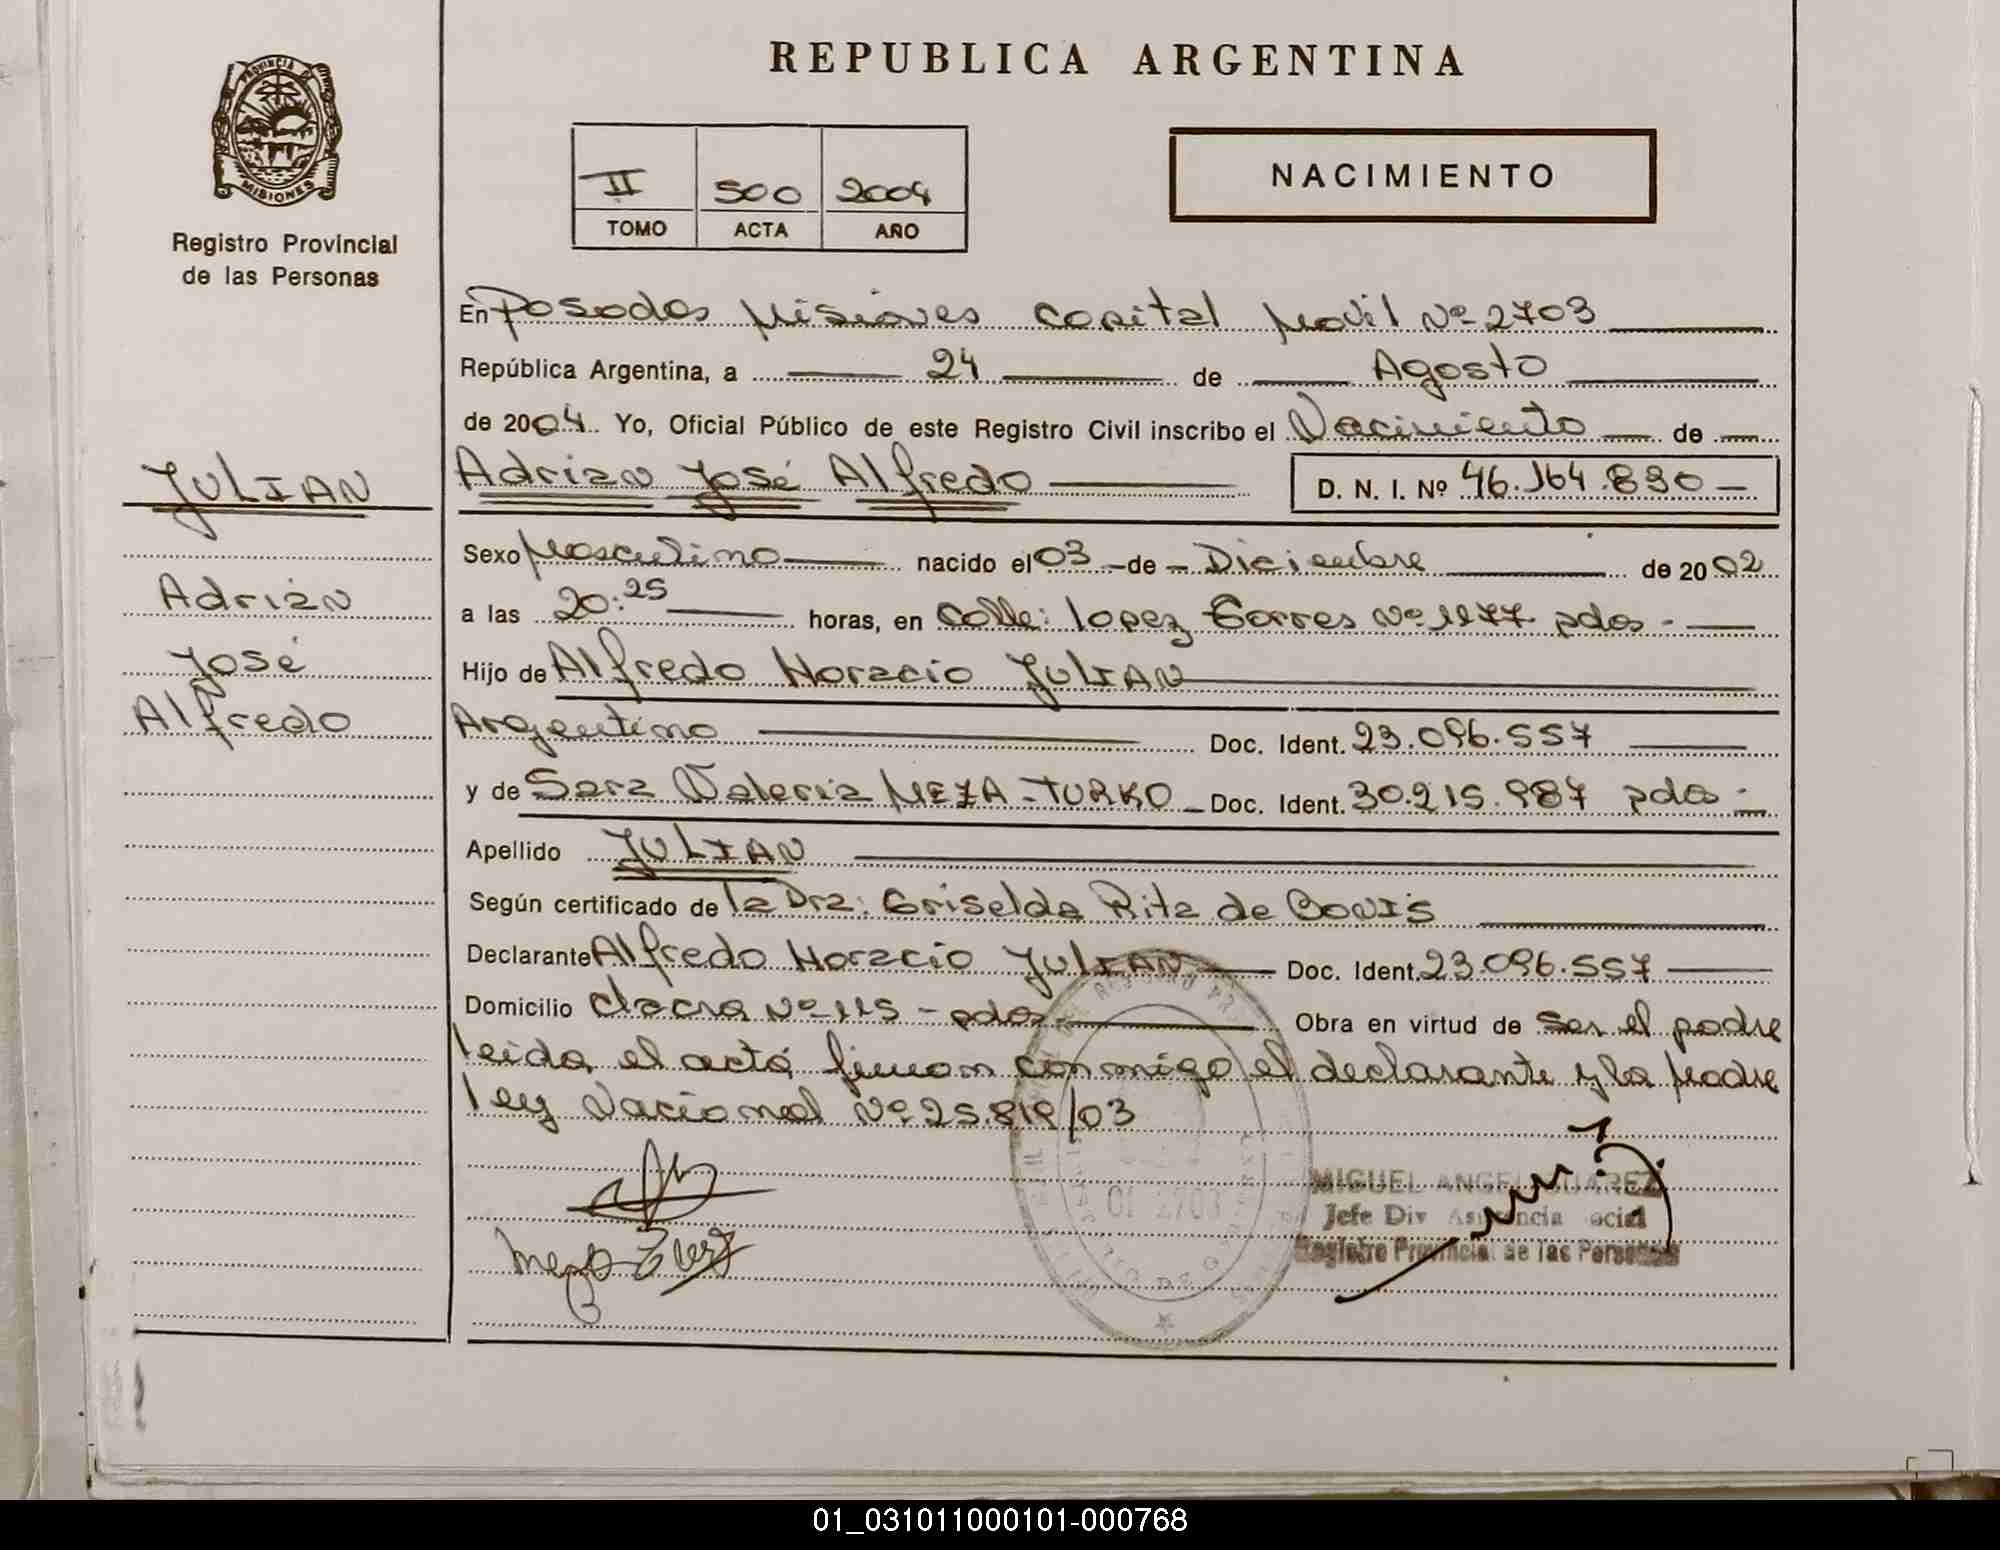 REPUBLICA ARGENTINA
PROVINCIA DE
MISIONES
Registro Provincial
de las Personas
II 500 2004
TOMO ACTA AÑO
NACIMIENTO
En Posadas Misiones Capital Movil Nº 2703
República Argentina, a 24 de Agosto
de 2004. Yo, Oficial Público de este Registro Civil inscribo el Nacimiento de
JULIAN
Adrian José Alfredo D. N. I. Nº 46.164.890
Sexo Masculino nacido el 03 de Diciembre de 2002
Adrián
a las 20:25 horas, en Calle: Lopez Torres Nº 1177 pdas.
José
Hijo de Alfredo Horacio JULIAN
Alfredo
Argentino Doc. Ident. 23.096.557
y de Sara Valeria MEZA-TURKO Doc. Ident. 30.215.987 pdas
Apellido JULIAN
Según certificado de la Dra: Griselda Rita de BOVIS
Declarante Alfredo Horacio JULIAN Doc. Ident. 23.096.557
Domicilio chacra Nº 115 - pdas. Obra en virtud de ser el padre
leida el acta firman conmigo el declarante y la madre
ley Nacional Nº 25.819/03
MIGUEL ANGEL SUAREZ
Jefe Div Asistencia Social
Registro Provincial de las Personas
01 2703
01_031011000101-000768